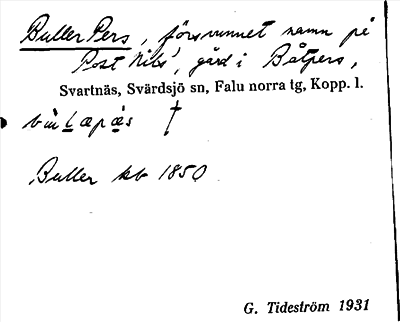 Buller Pers, försvunnet namn på
Post Nils', gård i Båtpers,
Svartnäs, Svärdsjö sn, Falu norra tg, Kopp. l.
Buller kb 1850
G. Tideström 1931